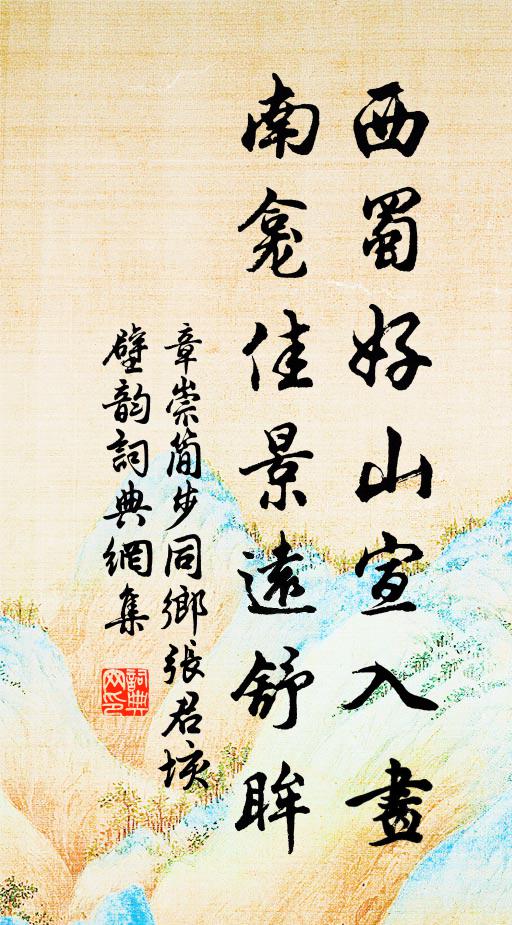 西蜀好山宣入畫
南龛佳景遠舒眸
章崇簡步同鄉張君垓
壁韵詞典網集
詞典網印